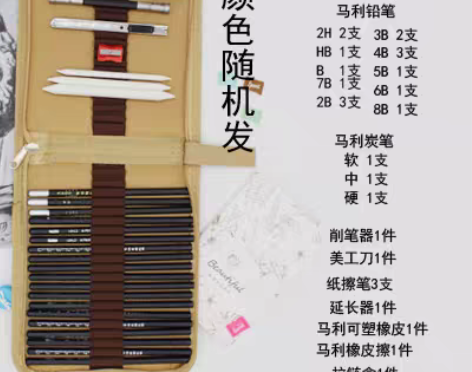 颜色随机发
马利铅笔
2H 2支 3B 2支
HB 1支 4B 3支
B 1支 5B 1支
7B 1支 6B 1支
2B 3支 8B 1支
马利炭笔
软 1支
中 1支
硬 1支
削笔器1件
美工刀1件
纸擦笔3支
延长器1件
马利可塑橡皮1件
马利橡皮擦1件
拉链盒1件
Beautiful